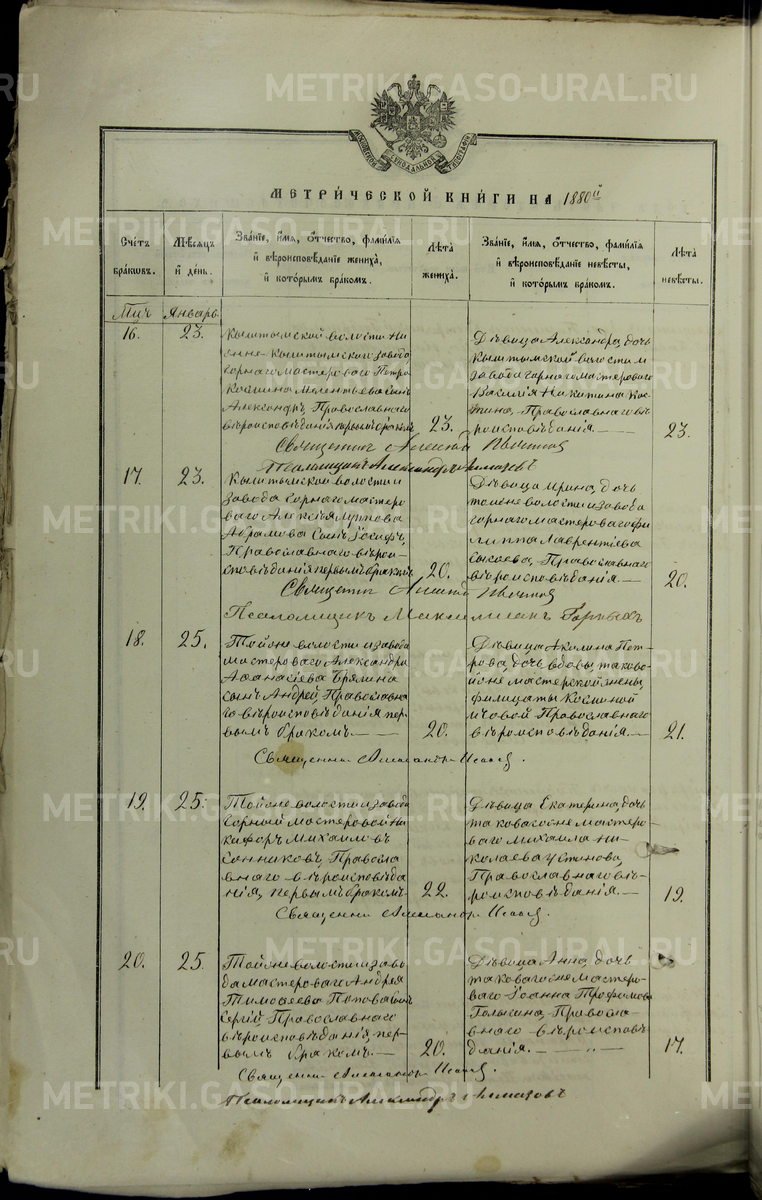 METRIKI.GASO-URAL.RU
МЕТРИ́ЧЕСКОЙ КНИ́ГИ НА 1880й
Сче́тъ бра́ковъ.
Мѣ́сяцъ и҆ день.
Зва́нїе, и҆́мя, о҆́тчество, фами́лїя и҆ вѣроисповѣ́данїе жениха̀, и҆ кото́рымъ бра́комъ.
Лѣ́та жениха̀.
Зва́нїе, и҆́мя, о҆́тчество, фами́лїя и҆ вѣроисповѣ́данїе невѣ́сты, и҆ кото́рымъ бра́комъ.
Лѣ́та невѣ́сты.
Мцъ Январь
16. 23.
Кыштымской волости Ни
жне-Кыштымскаго завода
горнаго мастероваго Петра
Космина Мелентьева сынъ
Александръ, Православнаго
вѣроисповѣданія первымъ бракомъ
23.
Дѣвица Александра, дочь
Кыштымской волости и
завода горнаго мастероваго
Василія Никитина Кос
тина, Православнаго вѣ
роисповѣданія.
23.
Священникъ Алексѣй
Псаломщикъ Александръ Алмазовъ
17. 23.
Кыштымской волости и
завода горнаго мастеро
ваго Алексѣя Луппова
Абрамова сынъ Іосифъ,
Православнаго вѣрои
сповѣданія первымъ бракомъ
20.
Дѣвица Ирина, дочь
тойже волости и завода
горнаго мастероваго Фи
липпа Лаврентіева
Сысоева, Православнаго
вѣроисповѣданія.
20.
Священникъ Алексѣй
Псаломщикъ Максимиліанъ
18. 25.
Тойже волости и завода
мастероваго Александра
Аѳанасіева Брялина
сынъ Андрей, Православна
го вѣроисповѣданія пер
вымъ бракомъ.
20.
Дѣвица Акилина Пет
рова, дочь вдовы таково
йже мастерской жены
Филицаты Космин​ой
Православнаго
вѣроисповѣданія.
21.
Священникъ Александръ
19. 25.
Тойже волости и завода
горный мастеровой Ни
кифоръ Михаиловъ
Сонниковъ, Правосла
внаго вѣроисповѣда
нія, первымъ бракомъ
22.
Дѣвица Екатерина, дочь
таковагоже мастеро
ваго Михаила Ни
колаева Устинова,
Православнаго вѣ
роисповѣданія.
19.
Священникъ Александръ
20. 25.
Тойже волости и заво
да мастероваго Андрея
Тимоѳеева Попова сынъ
Сергій, Православнаго
вѣроисповѣданія, пер
вымъ бракомъ.
20.
Дѣвица Анна, дочь
таковагоже мастеро
ваго Іоанна Трофимова
Голыгина, Правосла
внаго вѣроисповѣ
данія. — „ —
17.
Священникъ Александръ
Псаломщикъ Александръ Алмазовъ